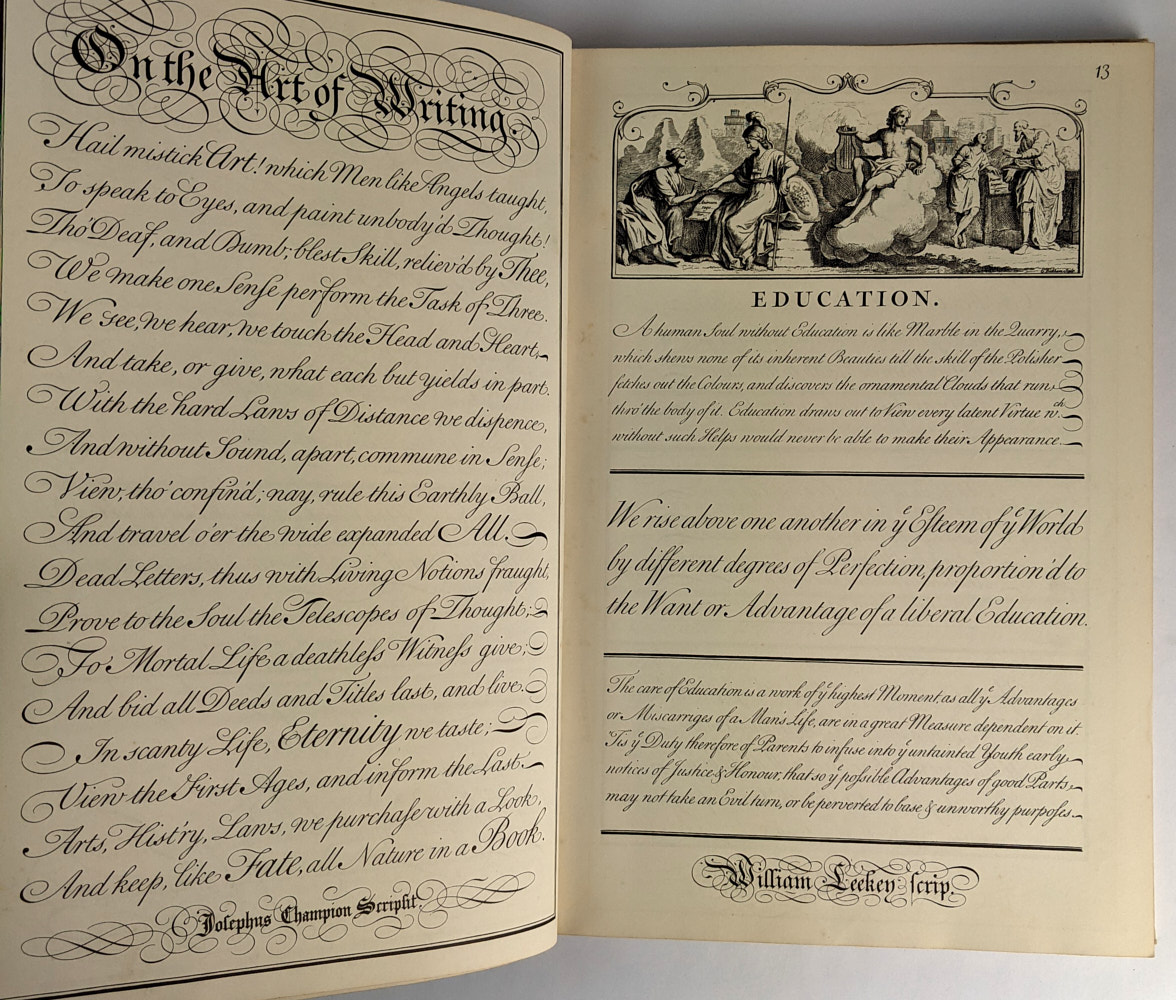 On the Art of Writing.
Hail mistick Art! which Men like Angels taught,
To speak to Eyes, and paint unbody'd Thought!
Tho' Deaf, and Dumb; blest Skill, reliev'd by Thee,
We make one Senſe perform the Task of Three.
We see, we hear, we touch the Head and Heart,
And take, or give, what each but yields in part.
With the hard Laws of Distance we dispence,
And without Sound, apart, commune in Senſe;
View, tho' confin'd; nay, rule this Earthly Ball,
And travel o'er the wide expanded All.
Dead Letters, thus with Living Notions fraught,
Prove to the Soul the Telescopes of Thought;
To Mortal Life a deathleſs Witneſs give;
And bid all Deeds and Titles last, and live.
In scanty Life, Eternity we taste;
View the First Ages, and inform the Last.
Arts, Hist'ry, Laws, we purchaſe with a Look,
And keep, like Fate, all Nature in a Book.
Joſephus Champion Scripſit.
13
EDUCATION.
A human Soul without Education is like Marble in the Quarry,
which shews none of its inherent Beauties till the skill of the Polisher
fetches out the Colours, and discovers the ornamental Clouds that run
thro' the body of it. Education draws out to View every latent Virtue wch
without such Helps would never be able to make their Appearance.
We rise above one another in ye Eſteem of ye World
by different degrees of Perfection, proportion'd to
the Want or Advantage of a liberal Education.
The care of Education is a work of ye highest Moment, as all ye Advantages
or Miscarriges of a Man's Life, are in a great Measure dependent on it.
'Tis ye Duty therefore of Parents to infuse into ye untainted Youth early
notices of Justice & Honour, that so ye poſsible Advantages of good Parts
may not take an Evil turn, or be perverted to base & unworthy purpoſes.
William Leekey ſcrip.